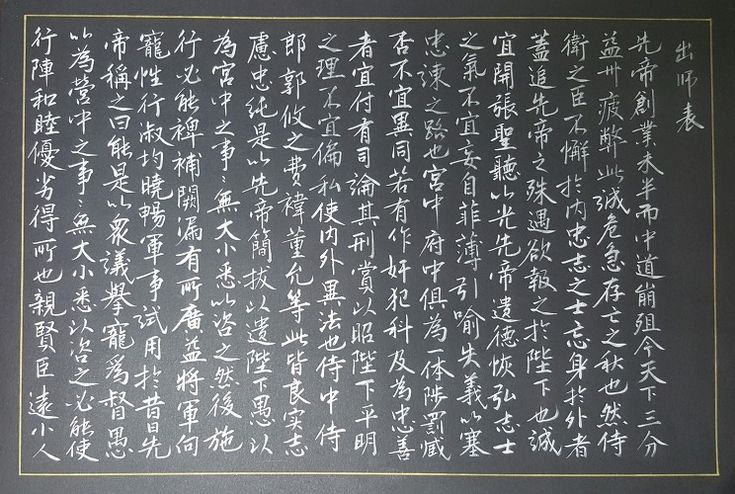 出師表
先帝創業未半而中道崩殂今天下三分
益州疲弊此誠危急存亡之秋也然侍
衛之臣不懈於内忠志之士忘身於外者
蓋追先帝之殊遇欲報之於陛下也誠
宜開張聖聽以光先帝遺德恢弘志士
之氣不宜妄自菲薄引喻失義以塞
忠諫之路也宮中府中俱為一体陟罰臧
否不宜異同若有作奸犯科及為忠善
者宜付有司論其刑賞以昭陛下平明
之理不宜偏私使内外異法也侍中侍
郎郭攸之費禕董允等此皆良实志
慮忠純是以先帝簡拔以遺陛下愚以
為宮中之事〻無大小悉以咨之然後施
行必能裨補闕漏有所廣益將軍向
寵性行淑均曉暢軍事試用於昔日先
帝稱之曰能是以眾議舉寵為督愚
以為營中之事〻無大小悉以咨之必能使
行陣和睦優劣得所也親賢臣遠小人